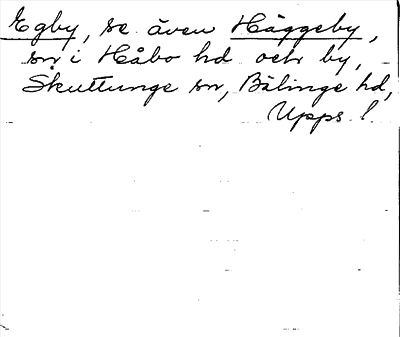 Egby, se även Häggeby,
sn i Håbo hd och by,
Skuttunge sn, Bälinge hd,
Upps. l.